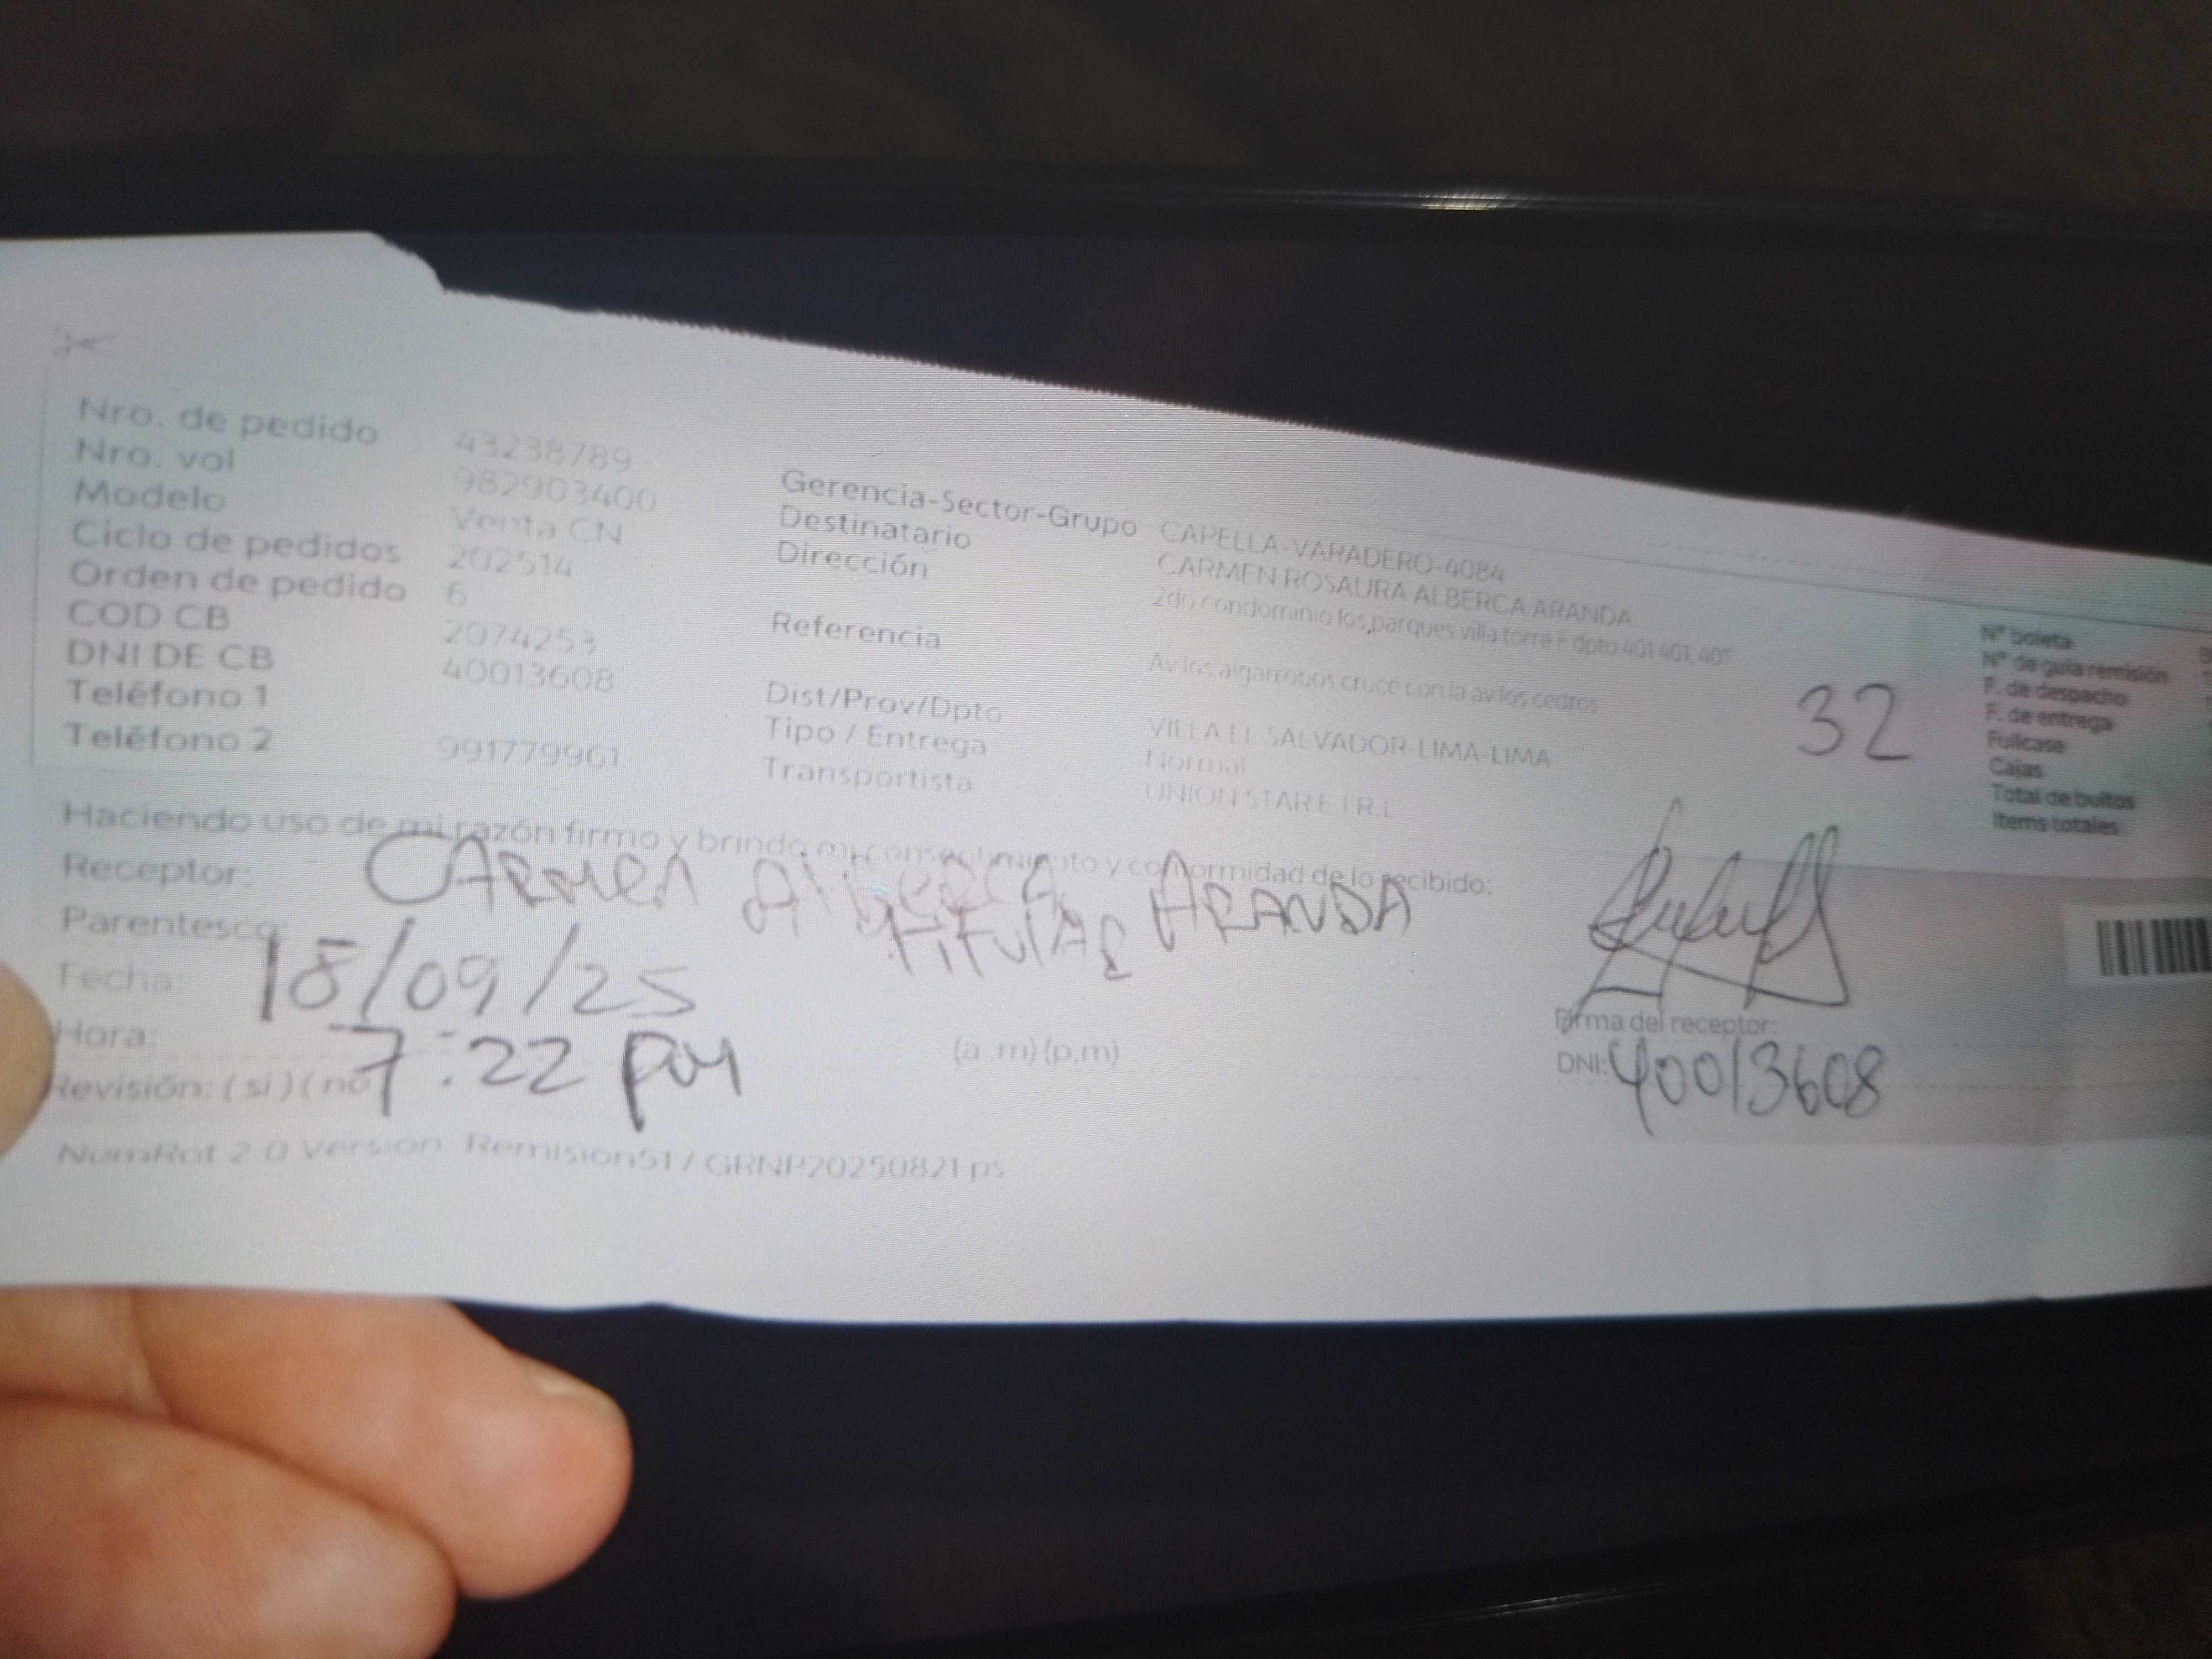 Nro. de pedido 43238789
Nro. vol 982903400
Modelo Venta CN
Ciclo de pedidos 202514
Orden de pedido 6
COD CB 2074253
DNI DE CB 40013608
Teléfono 1
Teléfono 2 991779961
Gerencia-Sector-Grupo CAPELLA-VARADERO-4084
Destinatario CARMEN ROSAURA ALBERCA ARANDA
Dirección 2do condominio los parques villa torre F dpto 401 401, 401
Referencia Av los algarrobos cruce con la av los cedros
Dist/Prov/Dpto VILLA EL SALVADOR-LIMA-LIMA
Tipo / Entrega Normal
Transportista UNION STAR E I R L
32
N° boleta
N° de guia remisión
F. de despacho
F. de entrega
Fullcase
Cajas
Total de bultos
Items totales
Haciendo uso de mi razón firmo y brindo mi consentimiento y conformidad de lo recibido:
Receptor: CARMEN AlBERCA ARANDA
Parentesco: TITULAR
Fecha: 18/09/25
Hora: 7:22 pm (a.m) (p.m)
Revisión: ( si ) ( no
Firma del receptor:
DNI: 40013608
NumRot 2.0 Version RemisionS1 / GRNP20250821.ps